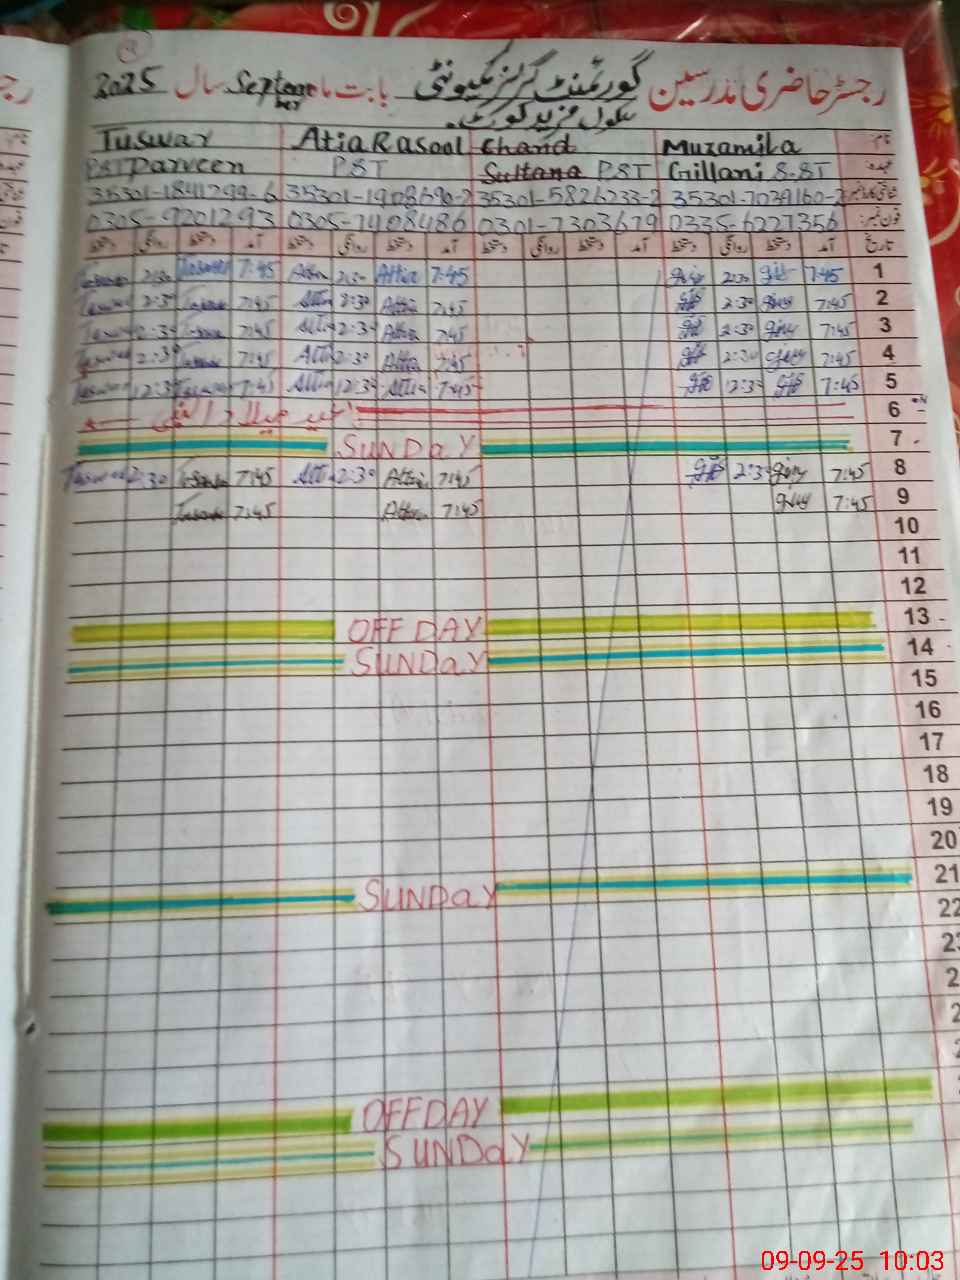 رجسٹر حاضری مدرسین گورنمنٹ گرلز کمیونٹی بابت ماہ September سال 2025
سکول مزید کورٹ
Tuswar Atia Rasool Chand Muzamila نام
PST Parveen PST Sultana PST Gillani S.ST عہدہ
35301-1841299-6 35301-1908690-2 35301-5826233-2 35301-7039160-2
0305-9201293 0305-7408486 0301-7303679 0335-6227356 فون نمبر
دستخط روانگی دستخط آمد دستخط روانگی دستخط آمد دستخط روانگی دستخط آمد دستخط روانگی دستخط آمد تاریخ
Tuswar 2:30 Tuswar 7:45 Attia 2:30 Attia 7:45 2:30 7:45 1
Tuswar 2:30 Tuswar 7:45 Attia 2:30 Attia 7:45 2:30 7:45 2
Tuswar 2:30 Tuswar 7:45 Attia 2:30 Attia 7:45 2:30 7:45 3
Tuswar 2:30 Tuswar 7:45 Attia 2:30 Attia 7:45 2:30 7:45 4
Tuswar 12:30 Tuswar 7:45 Attia 12:30 Attia 7:45 12:30 7:45 5
عید میلاد النبی 6
SUNDAY 7
Tuswar 2:30 Tuswar 7:45 Attia 2:30 Attia 7:45 2:30 7:45 8
Tuswar 7:45 Attia 7:45 7:45 9
10
11
12
OFF DAY 13
SUNDAY 14
15
16
17
18
19
20
SUNDAY 21
22
OFF DAY
SUNDAY
09-09-25 10:03